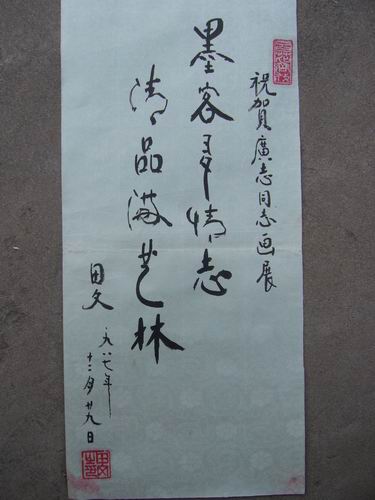 祝賀廣志同志画展
墨客多情志
清品满艺林
田文
一九八七年
十二月廿九日